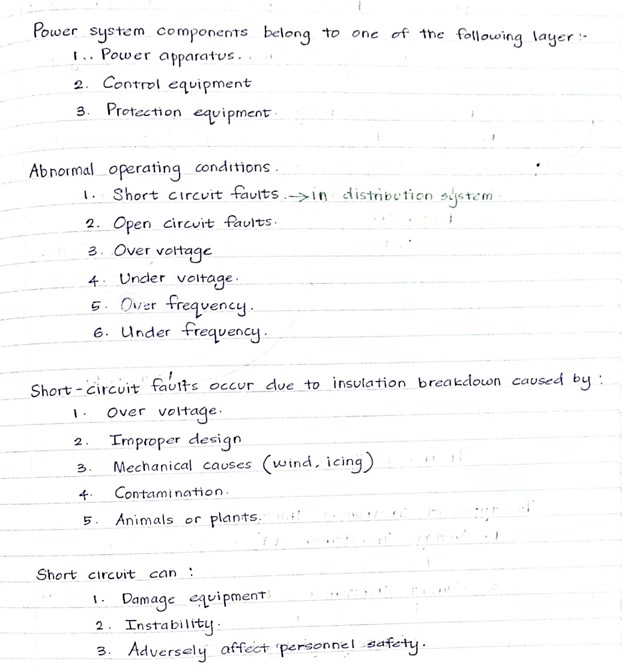 Power system components belong to one of the following layer :-
1.. Power apparatus.
2. Control equipment
3. Protection equipment.
Abnormal operating conditions.
1. Short circuit faults. → in distribution system
2. Open circuit faults.
3. Over voltage
4. Under voltage.
5. Over frequency.
6. Under frequency.
Short-circuit faults occur due to insulation breakdown caused by :
1. Over voltage.
2. Improper design
3. Mechanical causes (wind, icing)
4. Contamination.
5. Animals or plants.
Short circuit can :
1. Damage equipment
2. Instability.
3. Adversely affect personnel safety.